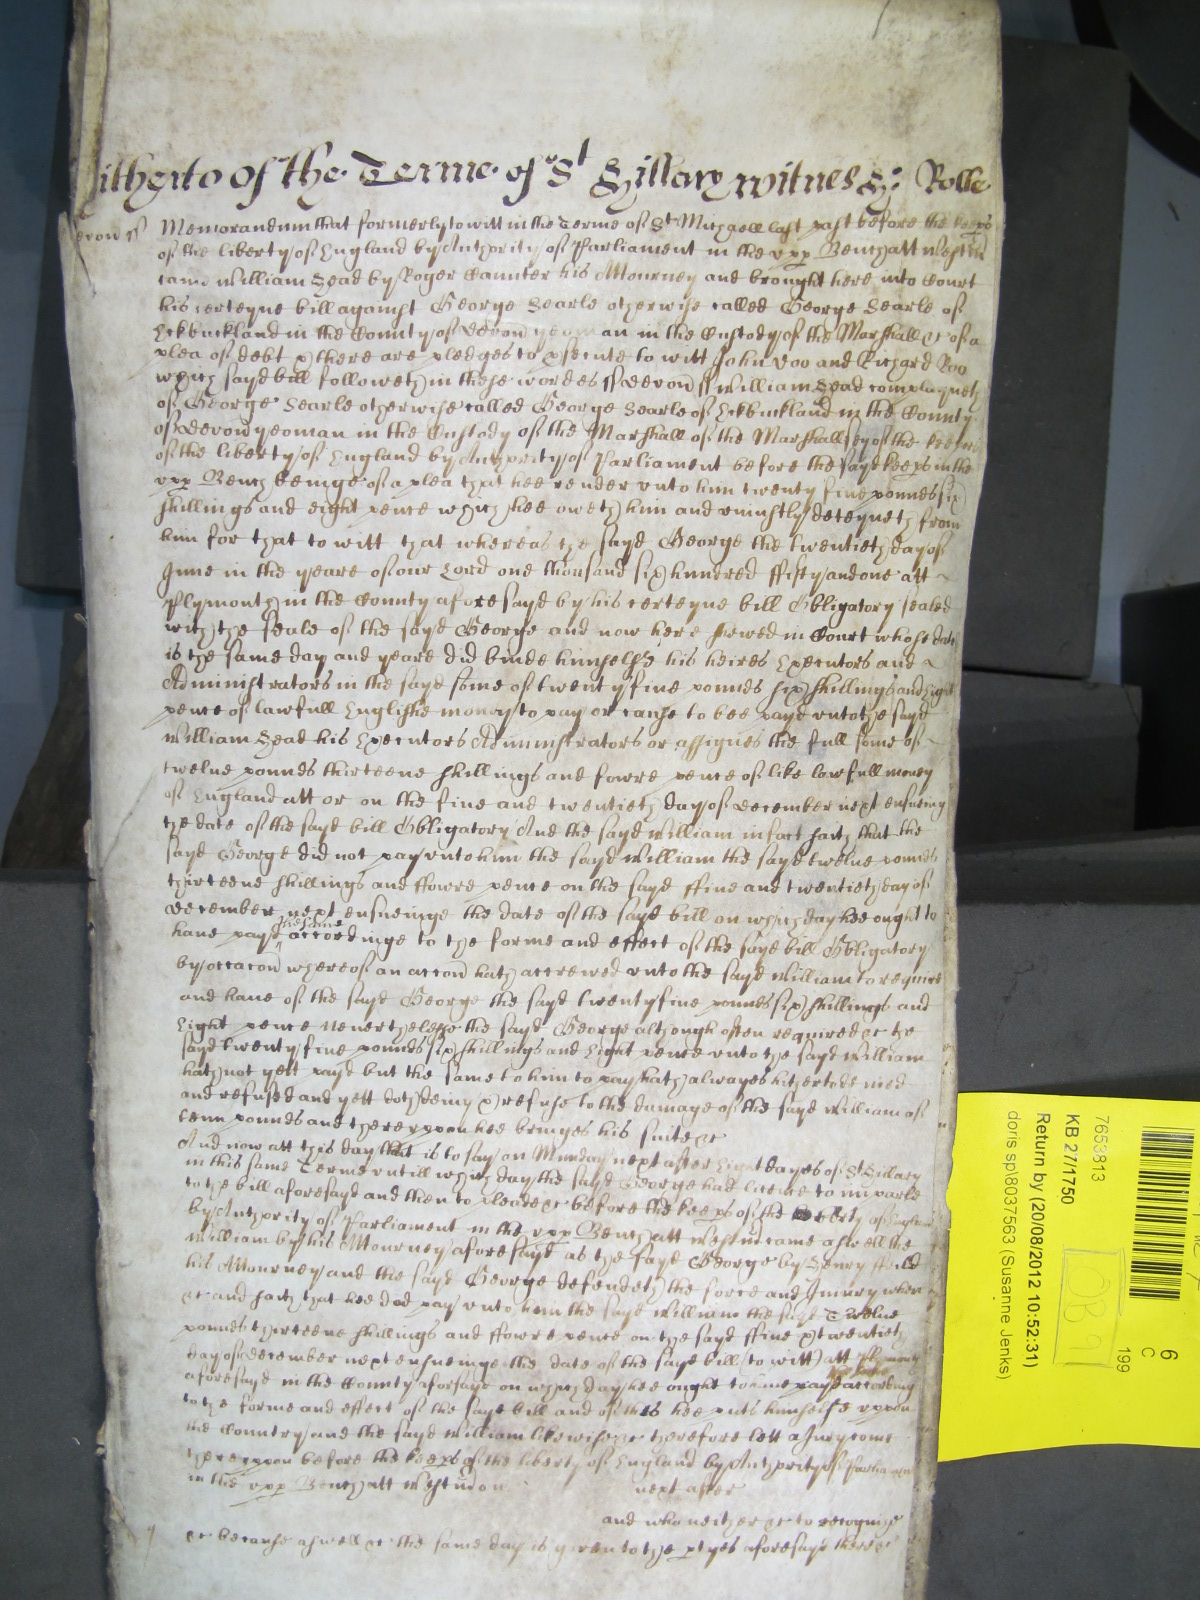 itherto of the Terme of St Hillary witnes &c Rolle
Devon ss Memorandum that formerly to witt in the Terme of St Michaell last past before the keeps
of the liberty of England by Authority of Parliament in the vpp Bench att Westm
came William Head by Roger Caunter his Attourney and brought here into Court
his certeyne bill against George Searle otherwise called George Searle of
Eckbuckland in the County of Devon yeoman in the Custody of the Marshall &c of a
plea of debt & there are pledges to psecute to witt John Doo and Richard Roo
which sayd bill followeth in these wordes ss Devon ss William Head complayneth
of George Searle otherwise called George Searle of Eckbuckland in the County
of Devon yeoman in the Custody of the Marshall of the Marshallsey of the keepers
of the liberty of England by Authority of Parliament before the sayd keeps in the
vpp Bench beinge of a plea that hee render vnto him twenty five pounds six
shillings and eight pence which hee oweth him and vniustly deteyneth from
him for that to witt that whereas the sayd George the twentieth day of
June in the yeare of our Lord one thousand six hundred ffifty and one att
Plymouth in the County aforesayd by his certeyne bill Obligatory sealed
with the seale of the sayd George and now here shewed in Court whose date
is the same day and yeare did binde himselfe his heires Executors and
Administrators in the sayd some of twenty five pounds six shillings and Eight
pence of lawfull Englishe money to pay or cause to bee payd vnto the sayd
William Head his Executors Administrators or assignes the full some of
twelue pounds thirteene shillings and fowre pence of like lawfull money
of England att or on the fiue and twentieth day of December next ensueing
the date of the sayd bill Obligatory And the sayd William in fact saith that the
sayd George did not pay vnto him the sayd William the sayd twelue pounds
thirteene shillings and ffowre pence on the sayd ffiue and twentieth day of
December next ensueinge the date of the sayd bill on which day hee ought to
haue payd the same accordinge to the forme and effect of the sayd bill Obligatory
by occacon whereof an accon hath accrewed vnto the sayd William to require
and haue of the sayd George the sayd twenty fiue pounds six shillings and
Eight pence Neuerthelesse the sayd George although often required &c the
sayd twenty fiue pounds six shillings and Eight pence vnto the sayd William
hath not yett payd but the same to him to pay hath alwayes hitherto denied
and refused and yett doth deny & refuse to the damage of the sayd William of
tenn pounds and therevpon hee bringes his suite &c
And now att this day that is to say on Munday next after Eight dayes of St Hillary
in this same Terme vntill which day the sayd George had licence to imparle
to the bill aforesayd and then to pleade &c before the keeps of the liberty of England
by Authority of Parliament in the vpp Bench att Westm came aswell the
William by his Attourney aforesayd as the sayd George by Henry ffeild
his Attourney and the sayd George defendeth the force and Iniury when
&c and saith that hee did pay vnto him the sayd William the sayd Twelue
pounds thirteene shillings and ffowre pence on the sayd ffiue & twentieth
day of December next ensueinge the date of the sayd bill (to witt) att Plymouth
aforesayd in the County aforsayd on which day hee ought to haue payd according
to the forme and effect of the sayd bill and of this hee puts himselfe vppon
the Country and the sayd William likewise &c therefore lett a Jury come
therevppon before the keeps of the liberty of England by Authority of Parliament
in the vpp Bench att Westm on next after
and who neither &c to recognize
&c because aswell &c the same day is given to the ptyes aforesayd there &c
7653813
KB 27/1750
Return by (20/08/2012 10:52:31)
doris sp\8037563 (Susanne Jenks)
6
C
199